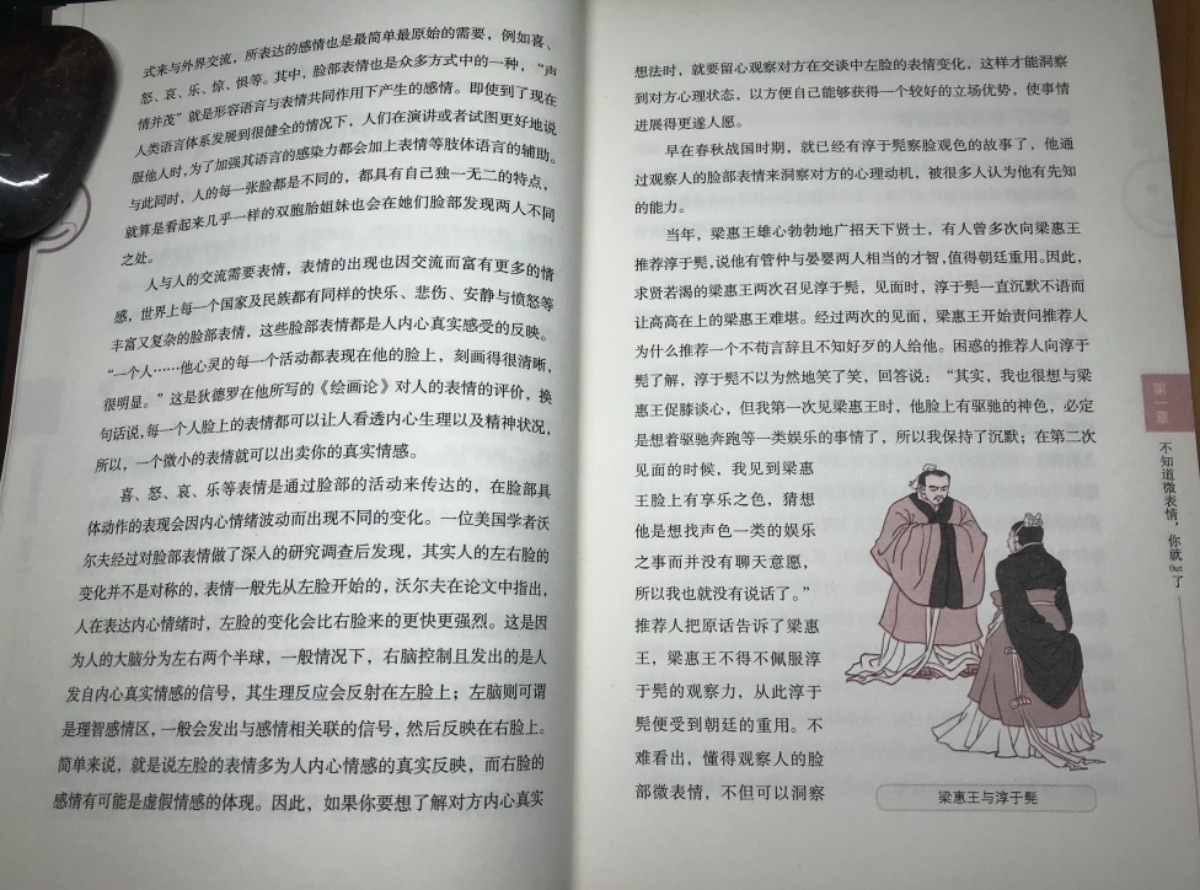 式来与外界交流，所表达的感情也是最简单最原始的需要，例如喜、
怒、哀、乐、惊、惧等。其中，脸部表情也是众多方式中的一种，“声
情并茂”就是形容语言与表情共同作用下产生的感情。即使到了现在
人类语言体系发展到很健全的情况下，人们在演讲或者试图更好地说
服他人时，为了加强其语言的感染力都会加上表情等肢体语言的辅助。
与此同时，人的每一张脸都是不同的，都具有自己独一无二的特点，
就算是看起来几乎一样的双胞胎姐妹也会在她们脸部发现两人不同
之处。
人与人的交流需要表情，表情的出现也因交流而富有更多的情
感，世界上每一个国家及民族都有同样的快乐、悲伤、安静与愤怒等
丰富又复杂的脸部表情，这些脸部表情都是人内心真实感受的反映。
“一个人……他心灵的每一个活动都表现在他的脸上，刻画得很清晰，
很明显。”这是狄德罗在他所写的《绘画论》对人的表情的评价，换
句话说，每一个人脸上的表情都可以让人看透内心生理以及精神状况，
所以，一个微小的表情就可以出卖你的真实情感。
喜、怒、哀、乐等表情是通过脸部的活动来传达的，在脸部具
体动作的表现会因内心情绪波动而出现不同的变化。一位美国学者沃
尔夫经过对脸部表情做了深入的研究调查后发现，其实人的左右脸的
变化并不是对称的，表情一般先从左脸开始的，沃尔夫在论文中指出，
人在表达内心情绪时，左脸的变化会比右脸来的更快更强烈。这是因
为人的大脑分为左右两个半球，一般情况下，右脑控制且发出的是人
发自内心真实情感的信号，其生理反应会反射在左脸上；左脑则可谓
是理智感情区，一般会发出与感情相关联的信号，然后反映在右脸上。
简单来说，就是说左脸的表情多为人内心情感的真实反映，而右脸的
感情有可能是虚假情感的体现。因此，如果你要想了解对方内心真实
想法时，就要留心观察对方在交谈中左脸的表情变化，这样才能洞察
到对方心理状态，以方便自己能够获得一个较好的立场优势，使事情
进展得更遂人愿。
早在春秋战国时期，就已经有淳于髡察脸观色的故事了，他通
过观察人的脸部表情来洞察对方的心理动机，被很多人认为他有先知
的能力。
当年，梁惠王雄心勃勃地广招天下贤士，有人曾多次向梁惠王
推荐淳于髡，说他有管仲与晏婴两人相当的才智，值得朝廷重用。因此，
求贤若渴的梁惠王两次召见淳于髡，见面时，淳于髡一直沉默不语而
让高高在上的梁惠王难堪。经过两次的见面，梁惠王开始责问推荐人
为什么推荐一个不苟言辞且不知好歹的人给他。困惑的推荐人向淳于
髡了解，淳于髡不以为然地笑了笑，回答说：“其实，我也很想与梁
惠王促膝谈心，但我第一次见梁惠王时，他脸上有驱驰的神色，必定
是想着驱驰奔跑等一类娱乐的事情了，所以我保持了沉默；在第二次
见面的时候，我见到梁惠
王脸上有享乐之色，猜想
他是想找声色一类的娱乐
之事而并没有聊天意愿，
所以我也就没有说话了。”
推荐人把原话告诉了梁惠
王，梁惠王不得不佩服淳
于髡的观察力，从此淳于
髡便受到朝廷的重用。不
难看出，懂得观察人的脸
部微表情，不但可以洞察
梁惠王与淳于髡
第一章
不知道微表情，你就Out了